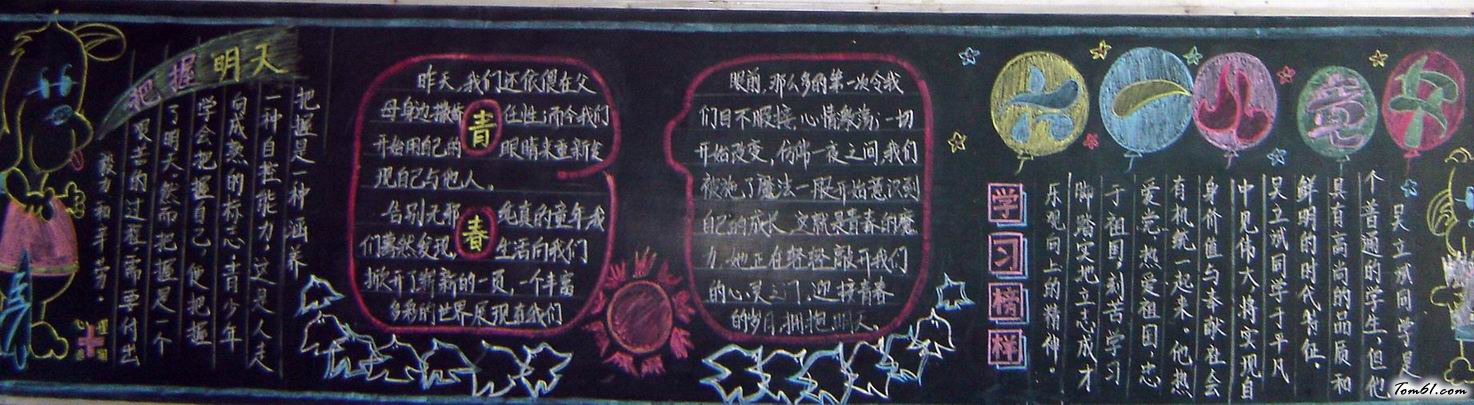 把握明天
把握是一种涵养
一种自控能力,这是人走
向成熟的标志,青少年
学会把握自己,便把握
了明天,然而把握是一个
艰苦的过程,需要付出
毅力和辛劳。
心理
青
春
昨天,我们还依偎在父
母身边撒娇任性,而今我们
开始用自己的眼睛来重新发
现自己与他人。
告别无邪纯真的童年,我
们蓦然发现,生活向我们
掀开了崭新的一页,一个丰富
多彩的世界展现在我们
眼前,那么多的第一次令我
们目不暇接,心情激荡;一切
开始改变,仿佛一夜之间,我们
被施了魔法一般开始意识到
自己的成长,这就是青春的魔
力,她正在轻轻敲开我们
的心灵之门,迎接青春
的岁月,拥抱明天。
学习榜样
吴立斌同学是
个普通的学生,但他
具有高尚的品质和
鲜明的时代特征。
吴立斌同学于平凡
中见伟大,将实现自
身价值与奉献社会
有机统一起来。他热
爱党,热爱祖国,忠
于祖国,刻苦学习
脚踏实地,立志成才
乐观向上的精神。
Tom61.com